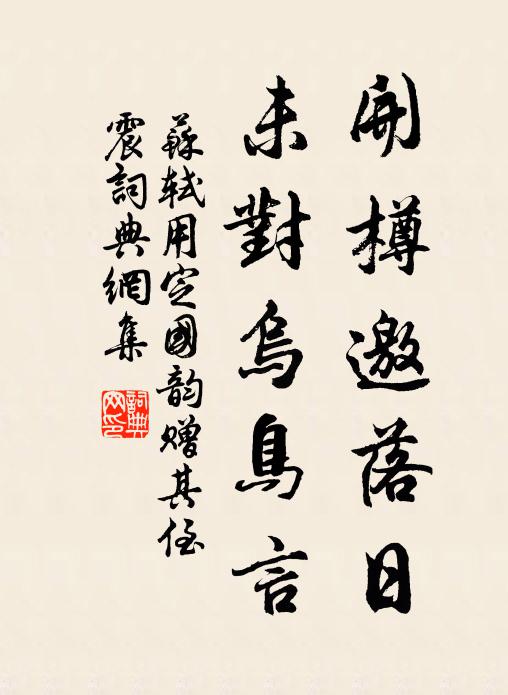 開樽邀落日
未對烏鳥言
蘇軾用定國韵贈其侄
震詞典網集
詞典
网印